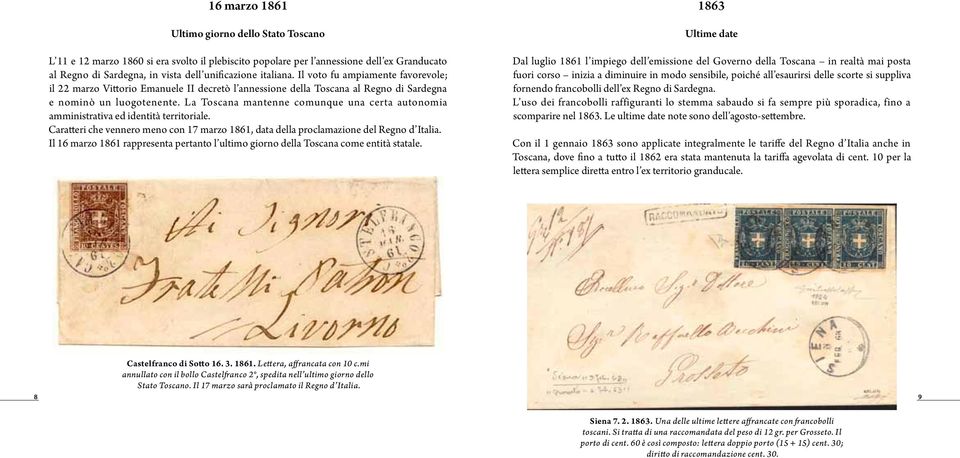 16 marzo 1861
Ultimo giorno dello Stato Toscano
L’11 e 12 marzo 1860 si era svolto il plebiscito popolare per l’annessione dell’ex Granducato
al Regno di Sardegna, in vista dell’unificazione italiana. Il voto fu ampiamente favorevole;
il 22 marzo Vittorio Emanuele II decretò l’annessione della Toscana al Regno di Sardegna
e nominò un luogotenente. La Toscana mantenne comunque una certa autonomia
amministrativa ed identità territoriale.
Caratteri che vennero meno con 17 marzo 1861, data della proclamazione del Regno d’Italia.
Il 16 marzo 1861 rappresenta pertanto l’ultimo giorno della Toscana come entità statale.
Ai Signori
Fratelli Paton
Livorno
CASTELFRANCO
16
MAR.
61
Castelfranco di Sotto 16. 3. 1861. Lettera, affrancata con 10 c.mi
annullato con il bollo Castelfranco 2°, spedita nell’ultimo giorno dello
Stato Toscano. Il 17 marzo sarà proclamato il Regno d’Italia.
8
1863
Ultime date
Dal luglio 1861 l’impiego dell’emissione del Governo della Toscana – in realtà mai posta
fuori corso – inizia a diminuire in modo sensibile, poiché all’esaurirsi delle scorte si suppliva
fornendo francobolli dell’ex Regno di Sardegna.
L’uso dei francobolli raffiguranti lo stemma sabaudo si fa sempre più sporadica, fino a
scomparire nel 1863. Le ultime date note sono dell’agosto-settembre.
Con il 1 gennaio 1863 sono applicate integralmente le tariffe del Regno d’Italia anche in
Toscana, dove fino a tutto il 1862 era stata mantenuta la tariffa agevolata di cent. 10 per la
lettera semplice diretta entro l’ex territorio granducale.
RACCOMANDATO
POSTALE POSTALE POSTALE
Eccellmo Sigr. Dottore
Sigr. Raffaello Becchini
Grosseto
SIENA
FEB 63
Siena 7. 2. 1863. Una delle ultime lettere affrancate con francobolli
toscani. Si tratta di una raccomandata del peso di 12 gr. per Grosseto. Il
porto di cent. 60 è così composto: lettera doppio porto (15 + 15) cent. 30;
diritto di raccomandazione cent. 30.
9